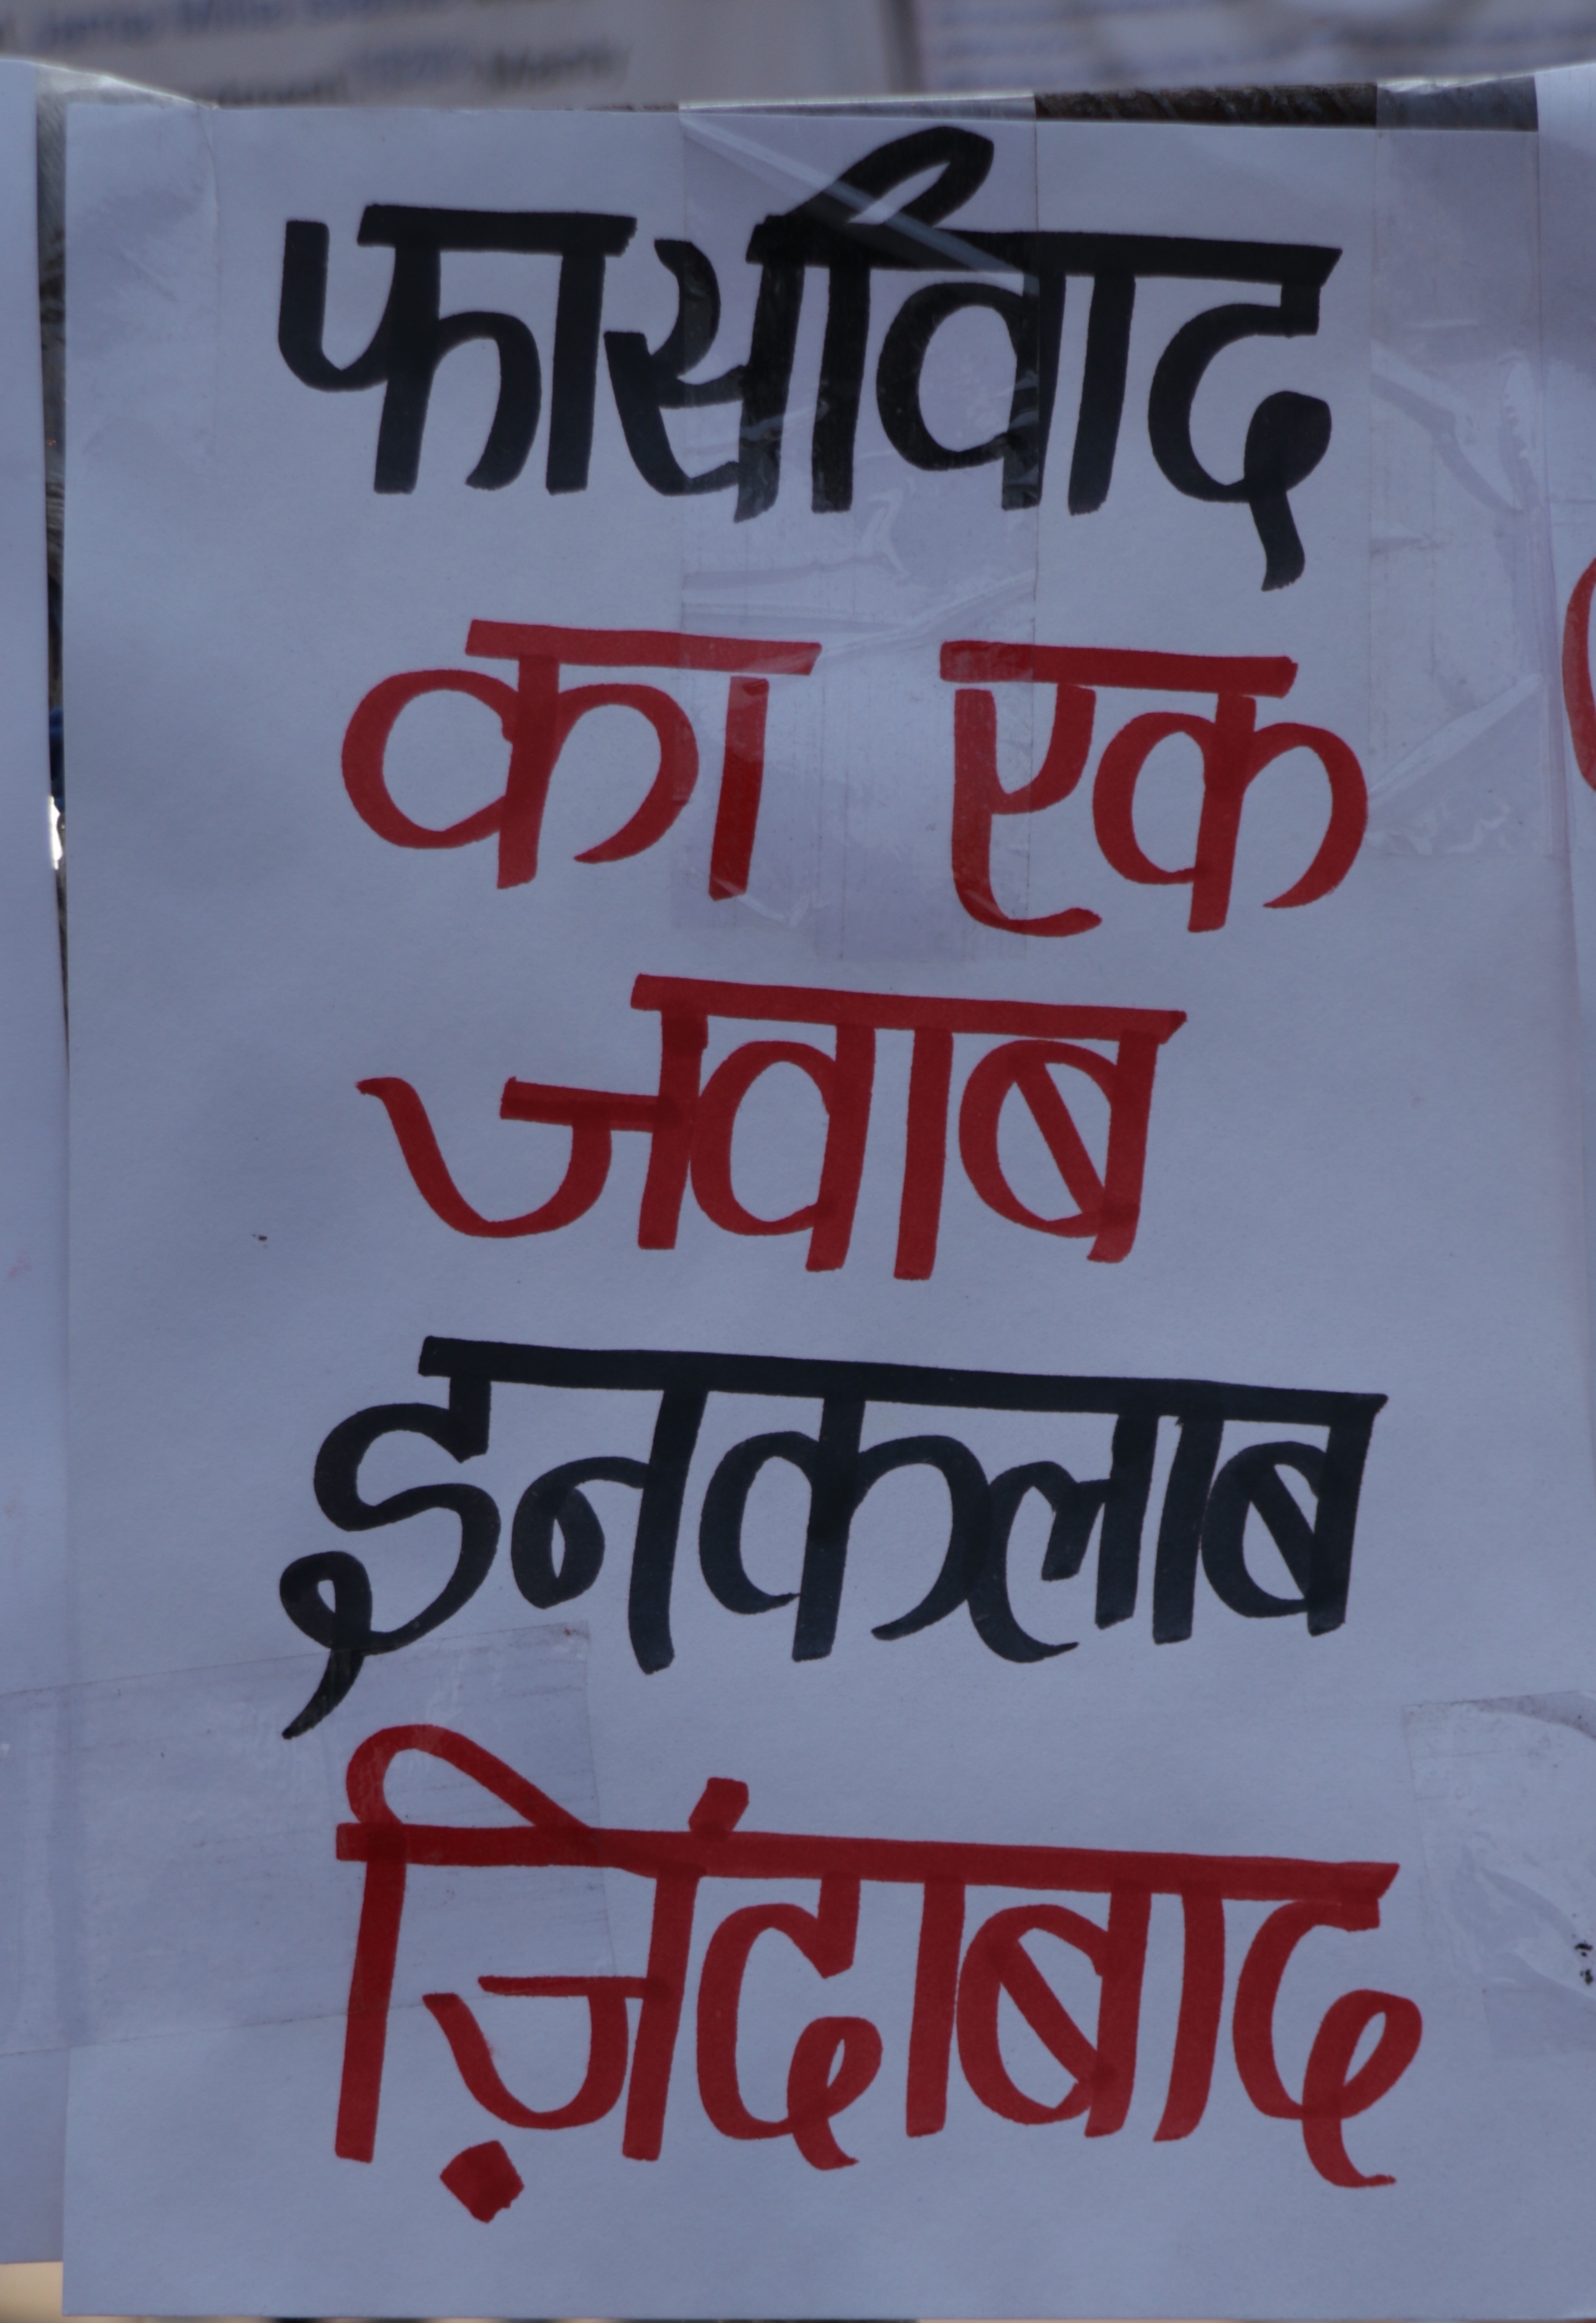 फासीवाद
का एक
जवाब
इनकलाब
ज़िंदाबाद